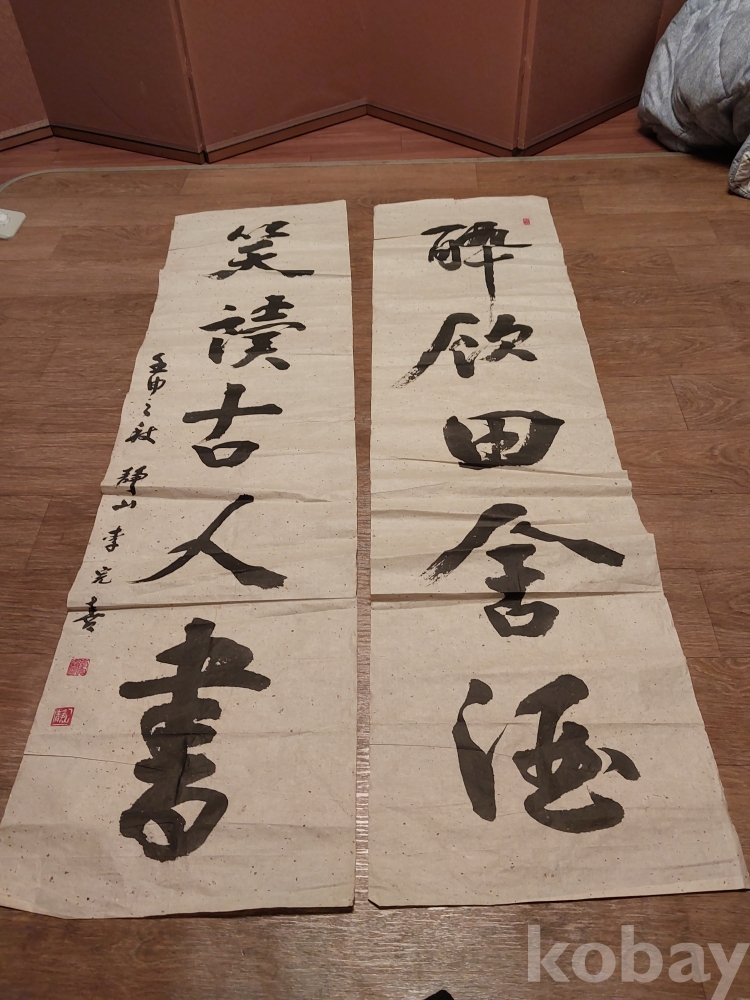 醉飲田舍酒
笑讀古人書
壬申之秋 靜山 李完
kobay